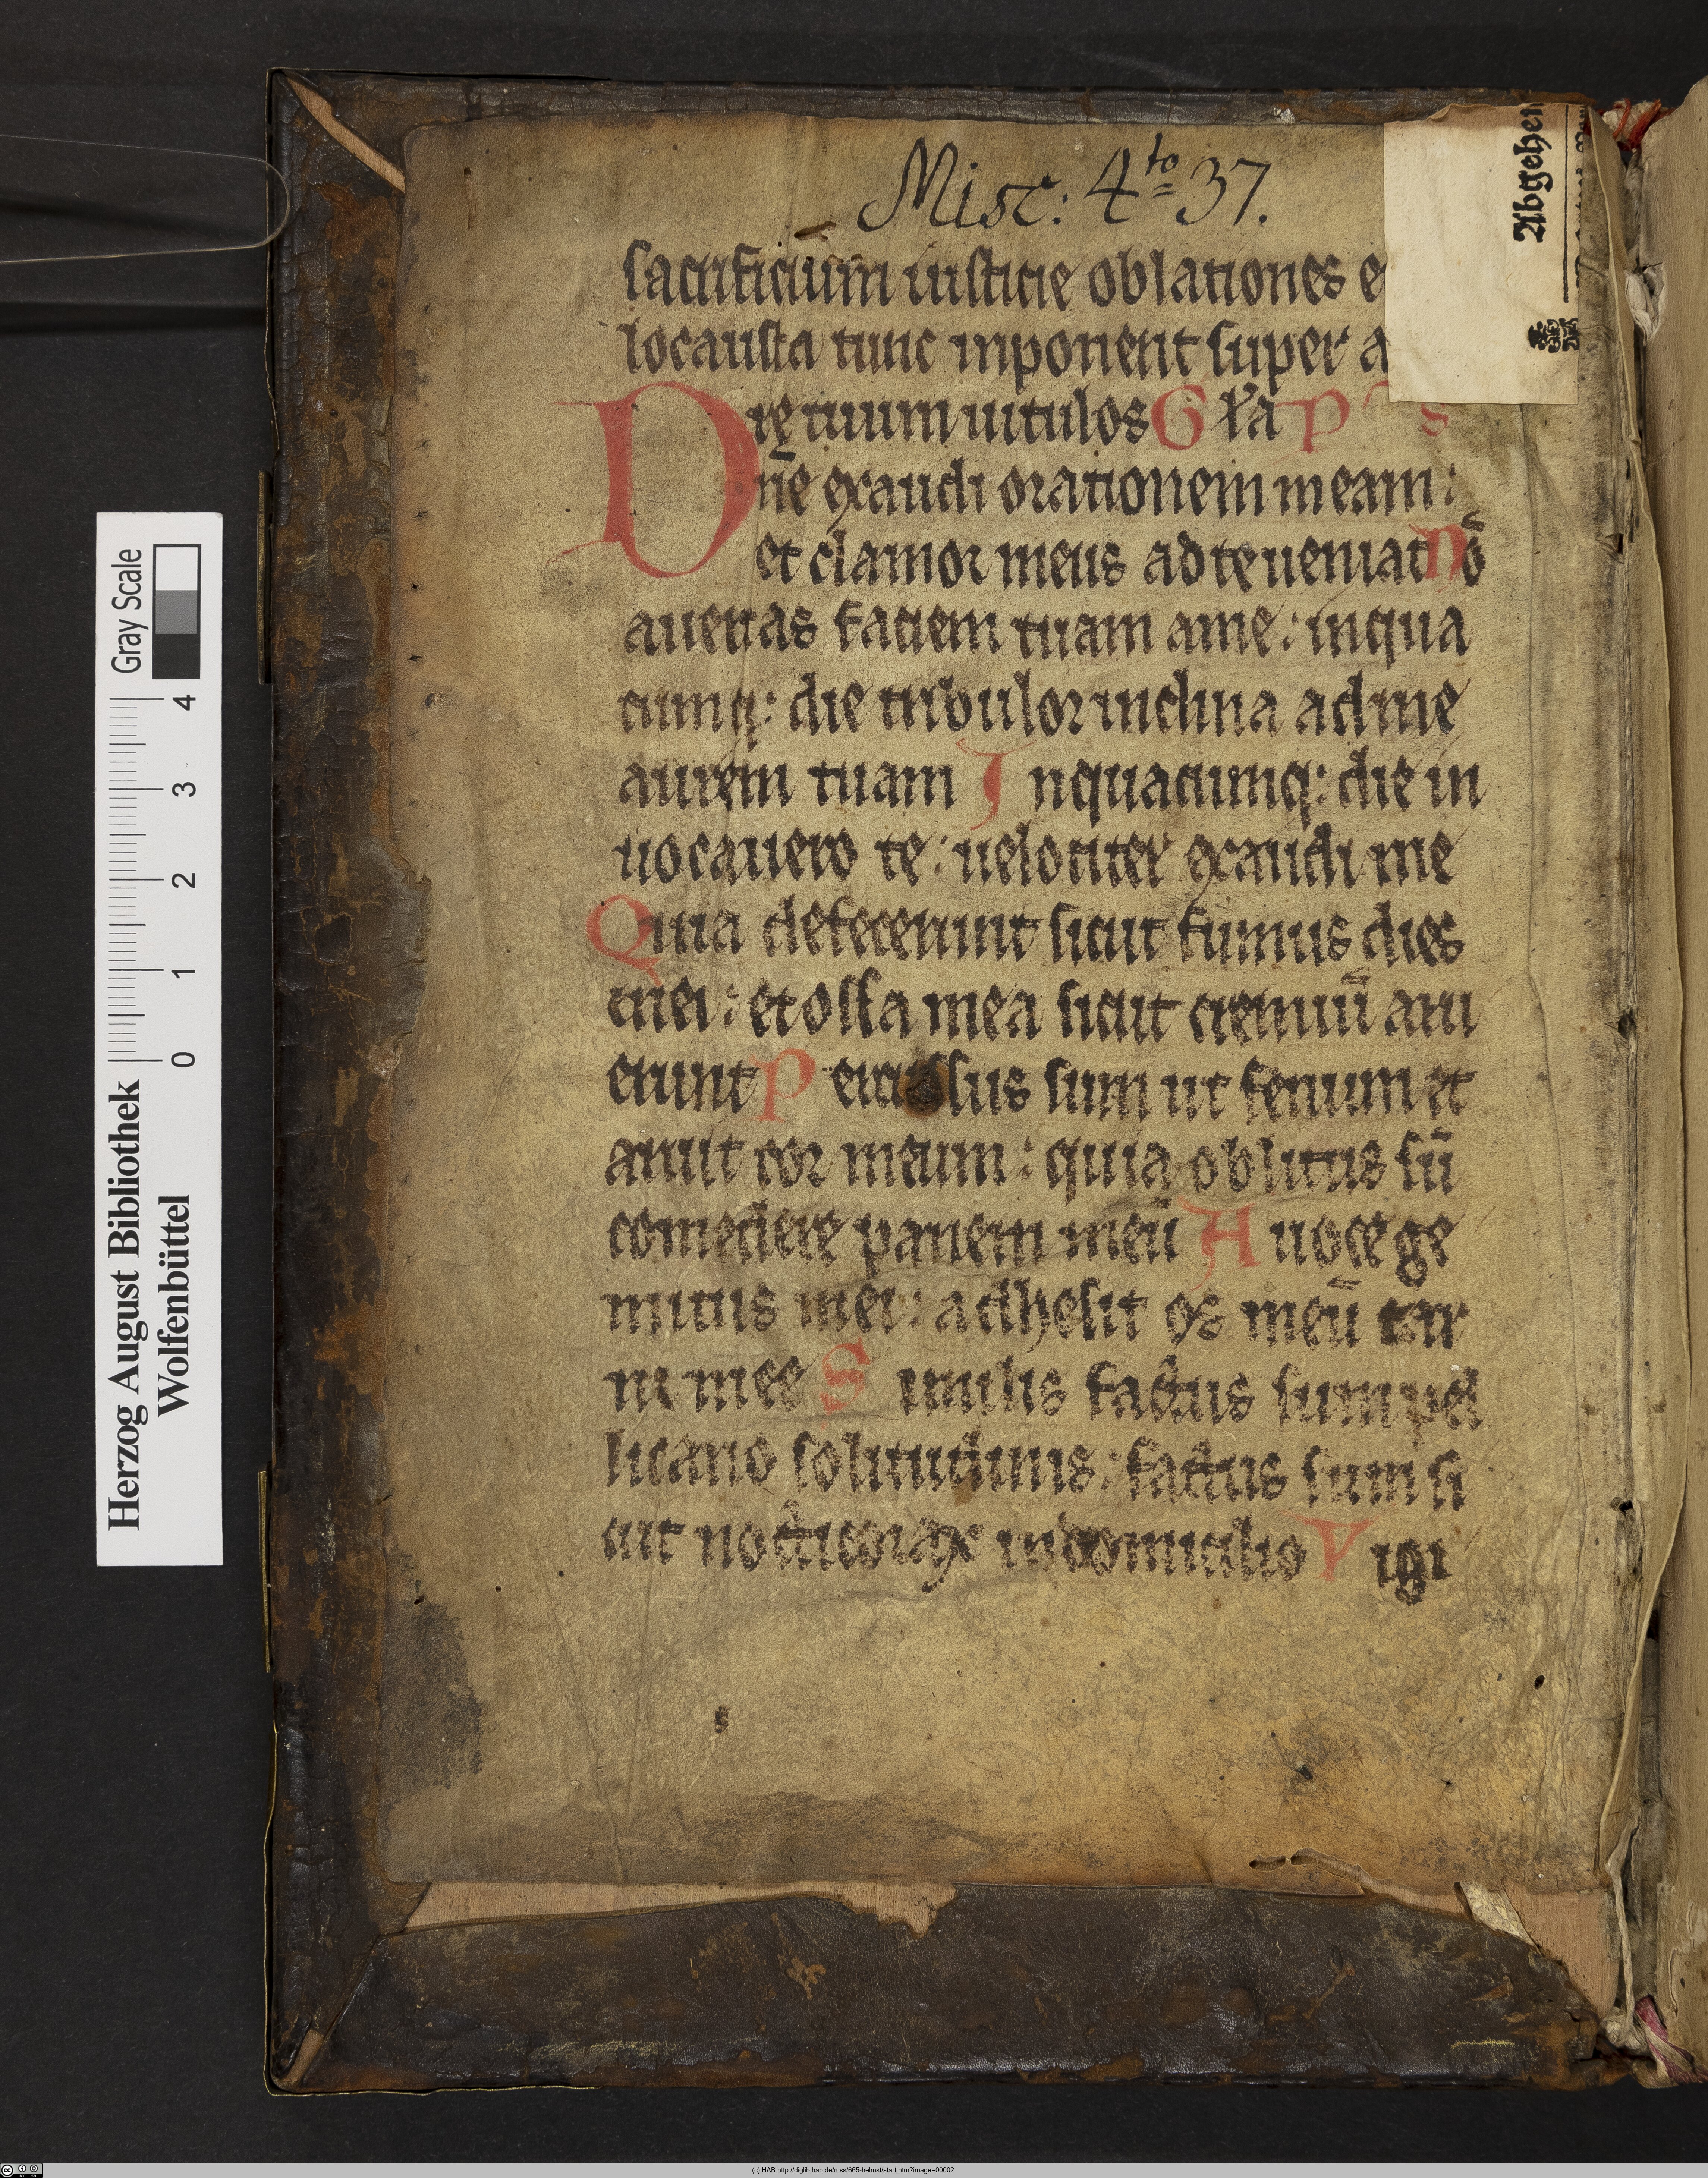 Misc: 4to 37.
Abgehen
sacrificium iusticie oblationes e
locausta tunc inponent super a
re tuum uitulos Gl'a P s
Dn̄e exaudi orationem meam:
et clamor meus ad te ueniat Nō
auertas faciem tuam a me: in qua
cumq: die tribulor inclina ad me
aurem tuam In quacumq: die in
uocauero te: uelociter exaudi me
Quia defecerunt sicut fumus dies
mei: et ossa mea sicut cremiū aru
erunt Percussus sum ut fenum et
aruit cor meum: quia oblitus sū
comedere panem meū A uoce ge
mitus mei: adhesit os meū car
ni mee Similis factus sum pel
licano solitudinis: factus sum si
cut nocticorax in domicilio Vigi
Gray Scale
0 1 2 3 4
Herzog August Bibliothek
Wolfenbüttel
(c) HAB http://diglib.hab.de/mss/665-helmst/start.htm?image=00002